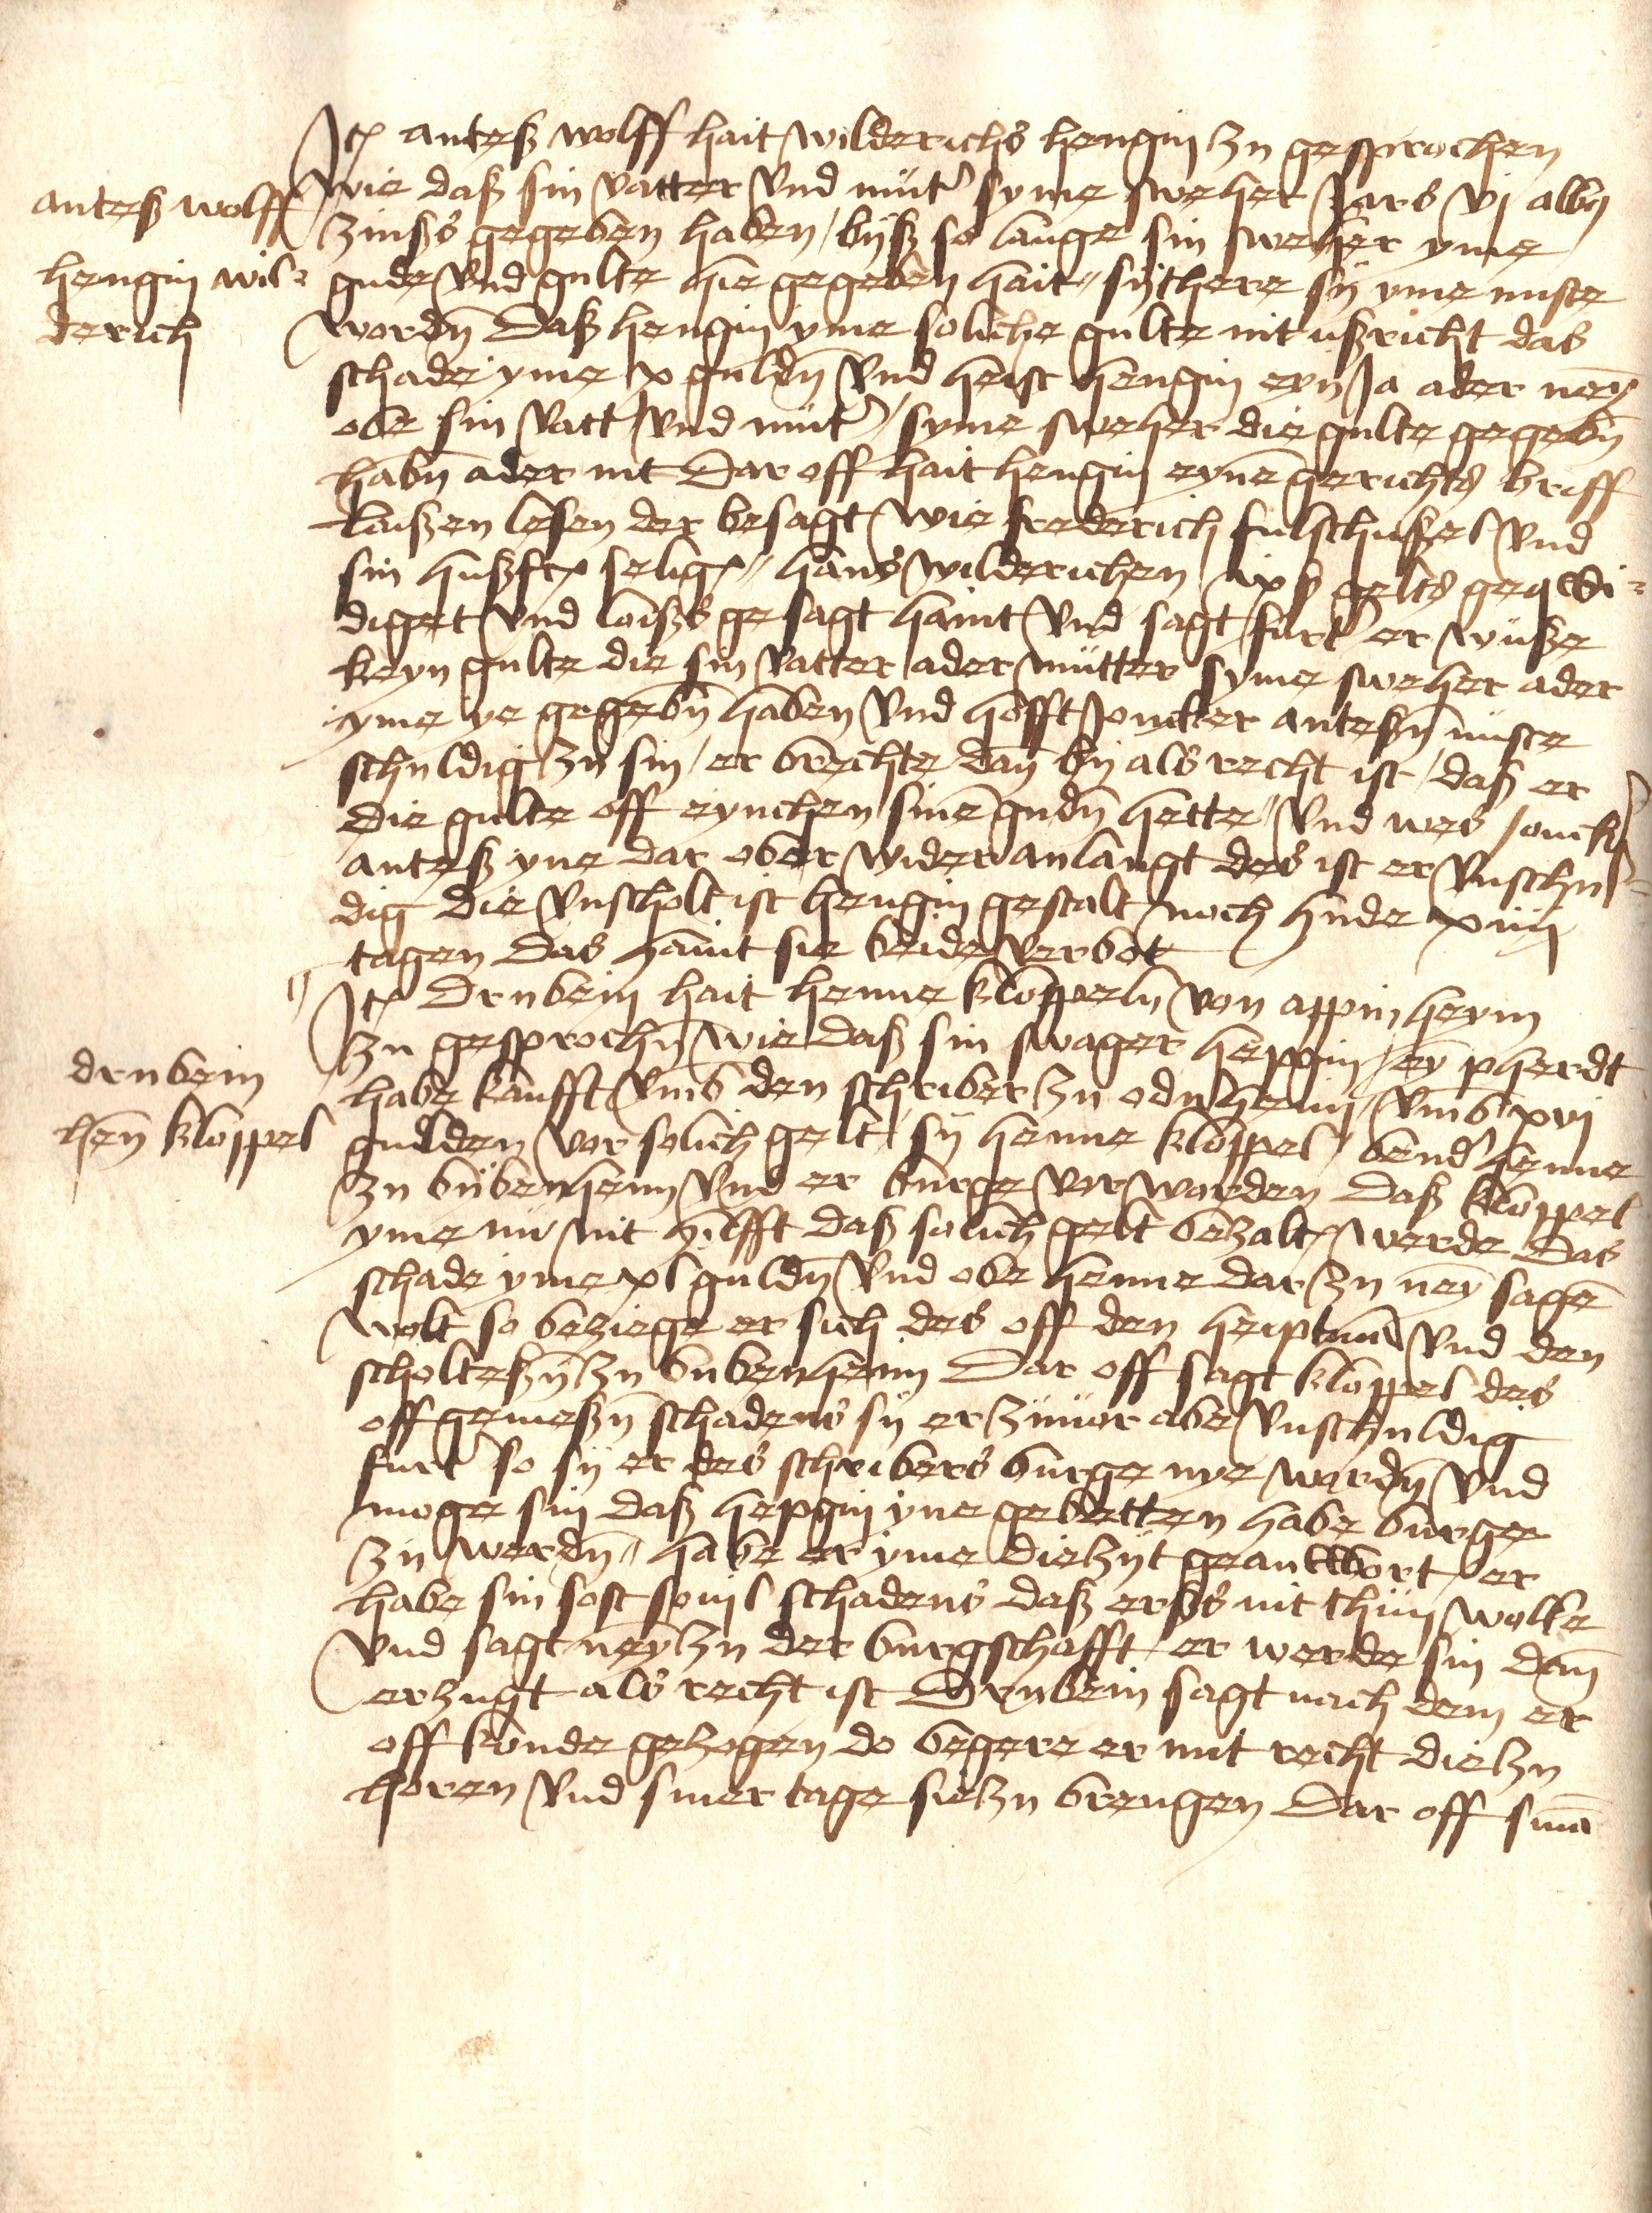 Jt(em) anteß wolff hait wilderichs hengin zu gesprochen
anteß wolff
wie daß sin vatter vnd mut(er) syme sweher Jars vj albg
zinßs gegeben haben bijß so lange sin sweher yme
hengin wil=
derich
gude vnd gulte hie gegeben hait sijthere sij yme nuste
word(e)n Daß hengin yme soliche gulte nit ußricht das
schade yme x guld(e)n vnd heist hengin eyn Ja ader ney(n)
obe sin vatt(er) vnd mut(er) syme sweher die gulte gegeb(e)n
hab(e)n ader nit Dar off hait hengin eyne(n) gerichts briff
laißen lesen der besagt wie frederich fulschußel vnd
sin hußfr(auwe) selig(e) hans wilderichen ix ß gelts geqwi=
diget vnd loißs gesagt haint vnd sagt furt(er) er wuße
keyn gulte die sin vatter ader mutter syme sweher ader
yme ye gegeb(e)n haben vnd hofft Joncker anteß(e)n nuste
schuldig zu sin er brechte dan(n) bij als recht ist daß er
die gulte off eynchen sine(n) gud(e)n hette vnd wes Jonck(er)
anteß yne dar ober wider anlangt des ist er vnschul=
dig die vnscholt ist hengin gestalt noch hude xiiij
tagen Das haint sie beide verbot
Jt(em) Drubein hait henne kloppeln von appinheym
zu gesproch(e)n wie daß sin swager heppin ey(n) pherdt
drubein
habe kaufft vmb den schriber zu odenheim vmb xvj
hen(ne) kloppel
gulden vor solich gelt sij henne kloppel bend(er) henne
zu bubenheim vnd er burge vor worden Daß kloppel
yme nu nit hilfft daß solich gelt bezalt werde Das
schade yme xl guld(e)n vnd obe henne dar zu ney(n) sage(n)
wolt so beziege er sich des off den heiptma(n) vnd den
scholteß(e)n zu bubenheim Dar off sagt kloppel des
offgemeß(e)n schadens sij er zuuor abe vnschuldig
furt(er) so sij er des schribers burge nye word(e)n vnd
moge sin daß hepgin yne gebetten habe burge
zu werd(e)n habe er yme die zijt geantwort er
habe sin sost souil schadens daß erßs nit thun wolte
vnd sagt ney(n) zu der burgschafft er werde sin dan(n)
erzugt als recht ist Drubein sagt nach dem er
off konde gezogen do begere er mit recht die zu
horen vnd siner tage sie zu brengen Dar off sin(t)